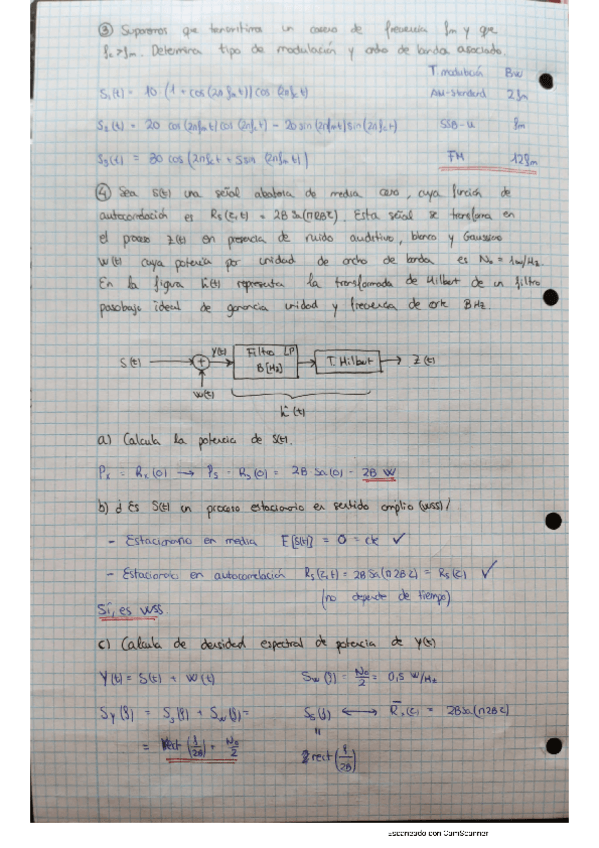 ③ Suponemos que transmitimos un coseno de frecuencia fm y que
fc > fm. Determina tipo de modulación y ancho de banda asociado.
T modulación BW
S₁(t) = 10 (1 + cos(2πfmt)) cos(2πfct) AM-standard 2fm
S₂(t) = 20 cos(2πfmt) cos(2πfct) - 20 sin(2πfmt) sin(2πfct) SSB-U fm
S₃(t) = 30 cos(2πfct + 5 sin(2πfmt)) FM 12fm
④ Sea S(t) una señal aleatoria de media cero, cuya función de
autocorrelación es Rs(τ,t) = 2B Sa(π2Bτ). Esta señal se transforma en
el proceso Z(t) en presencia de ruido auditivo, blanco y Gaussiano
W(t) cuya potencia por unidad de ancho de banda es N₀ = 1W/Hz.
En la figura ĥ(t) representa la transformada de Hilbert de un filtro
pasobajo ideal de ganancia unidad y frecuencia de corte B Hz.
S(t) + Y(t) Filtro LP B[Hz] T. Hilbert Z(t)
W(t)
ĥ(t)
a) Calcula la potencia de S(t).
Px = Rx(0) → Ps = Rs(0) = 2B Sa(0) = 2B W
b) ¿Es S(t) un proceso estacionario en sentido amplio (WSS)?
- Estacionario en media E[S(t)] = 0 = cte ✓
- Estacionario en autocorrelación Rs(τ,t) = 2B Sa(π2Bτ) = Rs(τ) ✓
(no depende de tiempo)
Sí, es WSS
c) Calcula de densidad espectral de potencia de Y(t)
Y(t) = S(t) + W(t) Sw(f) = N₀/2 = 0,5 W/Hz
Sy(f) = Ss(f) + Sw(f) = Ss(f) ⟷ R̄s(τ) = 2B Sa(π2Bτ)
= rect(f/2B) + N₀/2 " rect(f/2B)
Escaneado con CamScanner